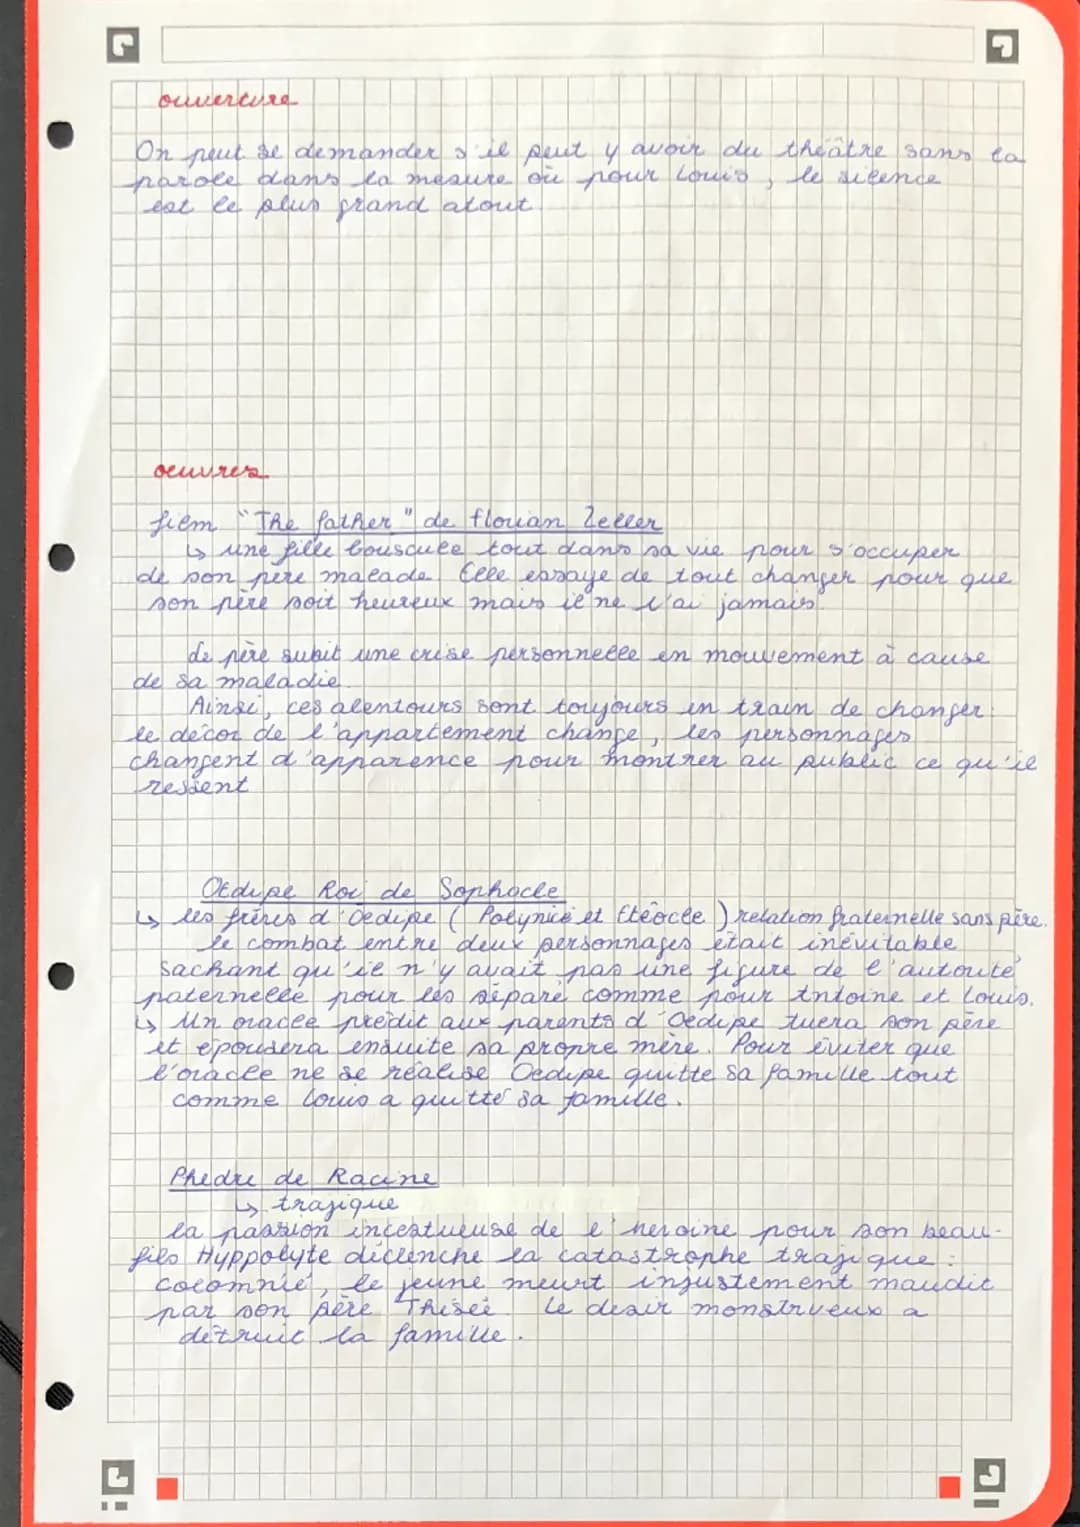 ouverture
On peut se demander s'il peut y avoir du théâtre sans la
parole dans la mesure où pour Louis, le silence
est le plus grand atout.
oeuvres
film "The father" de florian Zeller
↳ une fille bouscule tout dans sa vie pour s'occuper
de son père malade. Elle essaye de tout changer pour que
son père soit heureux mais il ne l'ai jamais.
Le père subit une crise personnelle en mouvement à cause
de sa maladie.
Ainsi, ces alentours sont toujours en train de changer:
le décor de l'appartement change, les personnages
changent d'apparence pour montrer au public ce qu'il
ressent
Oedipe Roi de Sophocle
↳ les frères d'Oedipe (Polynice et Etéocle) relation fraternelle sans père.
le combat entre deux personnages était inévitable
sachant qu'il n'y avait pas une figure de l'autorité
paternelle pour les séparé comme pour Antoine et Louis.
↳ Un oracle prédit aux parents d'Oedipe tuera son père
et épousera ensuite sa propre mère. Pour éviter que
l'oracle ne se réalise Oedipe quitte sa famille tout
comme Louis a quitté sa famille.
Phèdre de Racine
↳ tragique
la passion incestueuse de l'héroïne pour son beau-
fils Hyppolyte déclenche la catastrophe tragique:
calomnié, le jeune meurt injustement maudit
par son père Thésée. Le désir monstrueux a
détruit la famille.